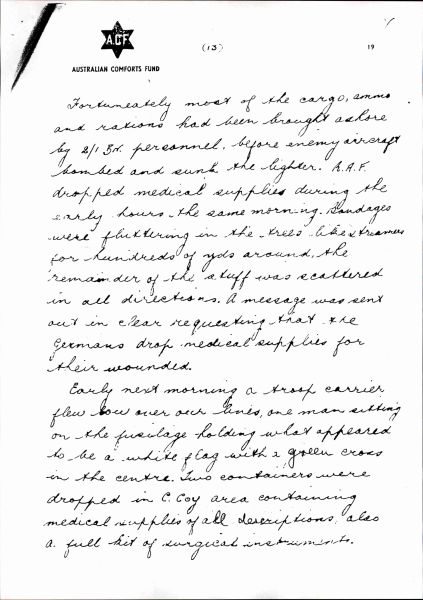 A.C.F.
(13)
19
AUSTRALIAN COMFORTS FUND
Fortuneately most of the cargo, ammo
and rations had been brought ashore
by 2/1 Bd. personnel, before enemy aircraft
bombed and sunk the lighter. R.A.F.
dropped medical supplies during the
early hours the same morning. Bandages
were fluttering in the trees like streamers
for hundreds of yds around, the
remainder of the stuff was scattered
in all directions. A message was sent
out in clear requesting that the
Germans drop medical supplies for
their wounded.
Early next morning a troop carrier
flew low over our lines, one man sitting
on the fusilage holding what appeared
to be a white flag with a green cross
in the centre. Two containers were
dropped in C. Coy area containing
medical supplies of all descriptions, also
a full kit of surgical instruments.